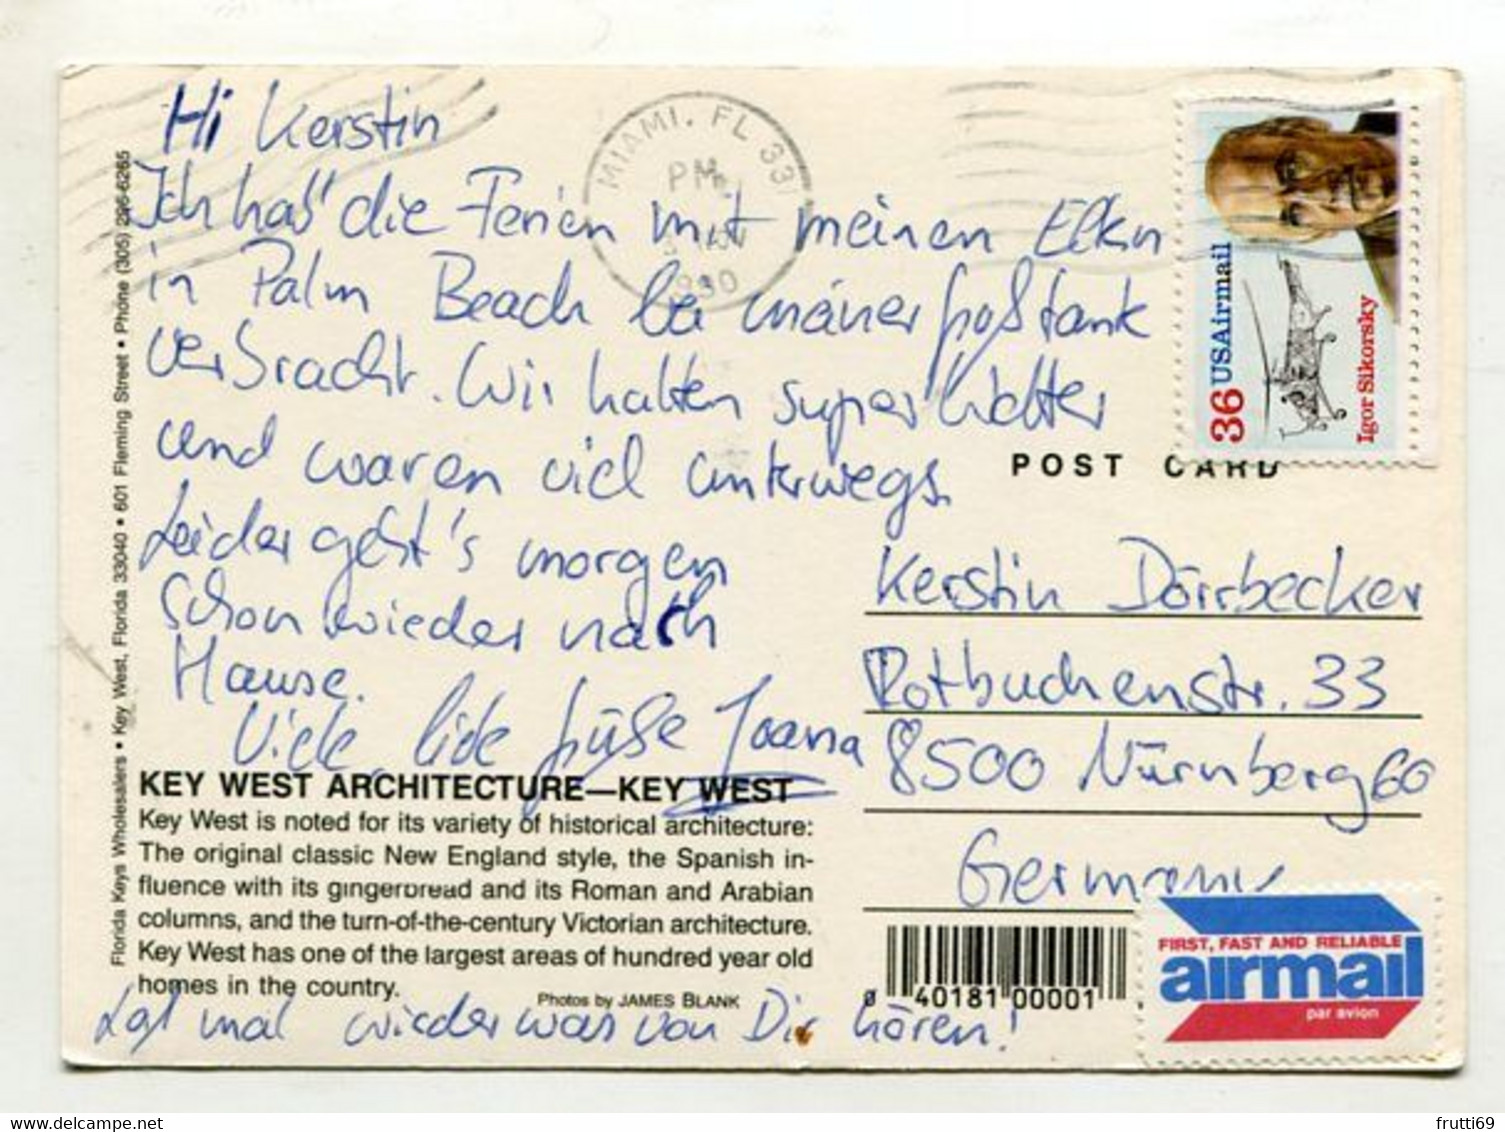 Hi Kerstin
Ich hab' die Ferien mit meinen Eltern
in Palm Beach bei meiner Großtante
verbracht. Wir hatten super Wetter
und waren viel unterwegs.
Leider geht's morgen
schon wieder nach
Hause.
Viele liebe Grüße Joana
Laß mal wieder was von Dir hören!
KEY WEST ARCHITECTURE—KEY WEST
Key West is noted for its variety of historical architecture:
The original classic New England style, the Spanish in-
fluence with its gingerbread and its Roman and Arabian
columns, and the turn-of-the-century Victorian architecture.
Key West has one of the largest areas of hundred year old
homes in the country.
Photos by JAMES BLANK
Florida Keys Wholesalers • Key West, Florida 33040 • 601 Fleming Street • Phone (305) 296-6265
MIAMI, FL 331
PM
1990
36 USAirmail
Igor Sikorsky
POST CARD
Kerstin Dörrbecker
Rotbuchenstr. 33
8500 Nürnberg 60
Germany
0 40181 00001
FIRST, FAST AND RELIABLE
airmail
par avion
delcampe.net
frutti69